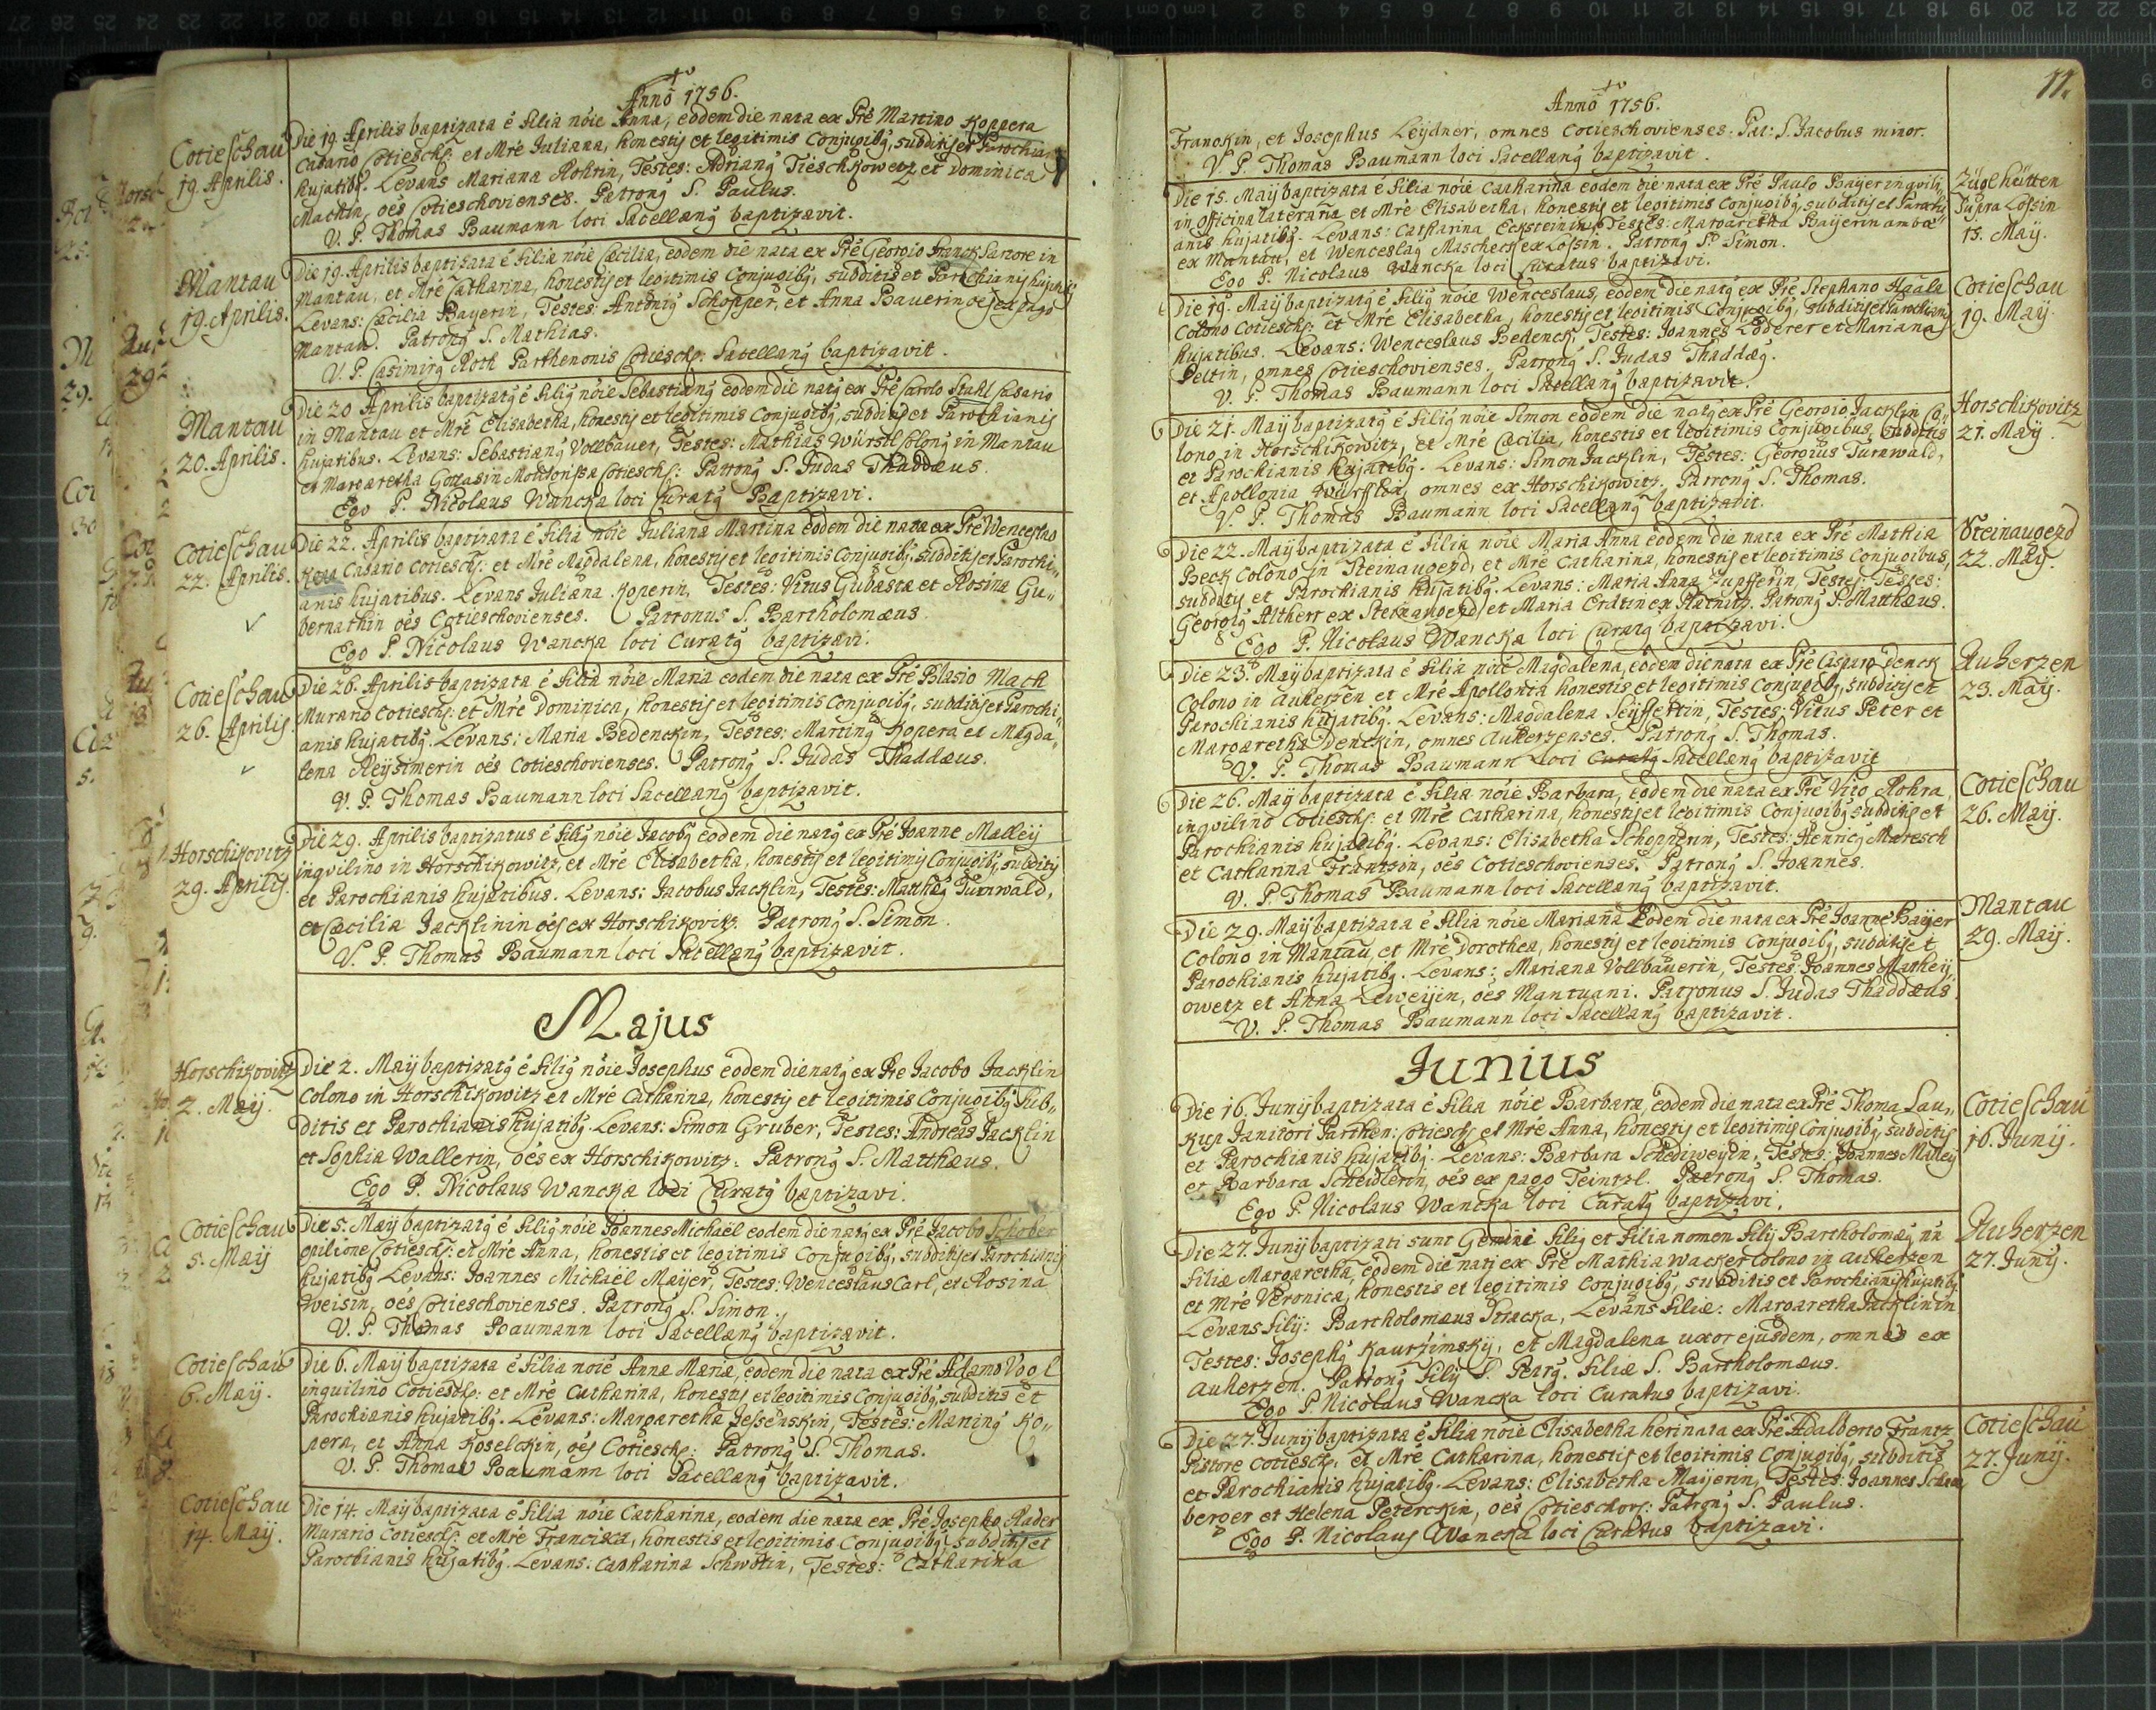 Anno 1756.
Cotieschau
19 Aprilis.
Die 19. Aprilis baptizata ẽ filia nõie Anna, eodem die nata ex Pr̃e Martino Koppera
Casario Cotiesch: et Mr̃e Juliana, honestis et legitimis Conjugibg, subditis et Parochia
hujatibg. Levans Mariana Rohrin, Testes: Adriang Tieschkowetz et Dominica
Machin, oẽs Cotieschovienses. Patrong S. Paulus.
V. P. Thomas Baumann loci Sacellang baptizavit.
Mantau
19. Aprilis.
Die 19. Aprilis baptizata ẽ filia nõie Cæcilia, eodem die nata ex Pr̃e Georgio Franck Sartore in
Mantau, et Mr̃e Catharina, honestis et legitimis Conjugibg, subditis et Parochianis hujatibg
Levans: Cæcilia Bayerin, Testes: Antonig Schopper, et Anna Bauerin oẽs ex pago
Mantau. Patrong S. Mathias.
V. P. Casimirg Roth Parthenonis Cotiesch: Sacellang baptizavit.
Mantau
20. Aprilis.
Die 20 Aprilis baptizatg ẽ filig nõie Sebastiang eodem die natg ex Pr̃e Carolo Stahl Casario
in Mantau et Mr̃e Elisabetha, honestis et legitimis Conjugibg, subditis et Parochianis
hujatibus. Levans: Sebastiang Vollbauer, Testes: Mathias Würstl Colong in Mantau
et Margaretha
Ego P. Nicolaus Wancka loci Curatg Baptizavi.
Cotieschau
22. Aprilis.
Die 22. Aprilis baptizata ẽ filia nõie Juliana Martina eodem die nata ex Pr̃e Wenceslao
Casario Cotiesch: et Mr̃e Magdalena, honestis et legitimis Conjugibg, subditis et Parochi„
anis hujatibus. Levans Juliana Koperin, Testes: Vitus Gubasta et Rosina Gu„
bernathin oẽs Cotieschovienses. Patronus S. Bartholomæus.
Ego P. Nicolaus Wancka loci Curatg baptizavi.
Cotieschau
26. Aprilis.
Die 26. Aprilis baptizata ẽ filia nõie Maria eodem die nata ex Pr̃e Blasio Mach
Murario Cotiesch: et Mr̃e Dominica, honestis et legitimis Conjugibg, subditis et Parochi„
anis hujatibg. Levans: Maria Bedenckin, Testes: Marting Kopera et Magda„
lena Reysimerin oẽs Cotieschovienses. Patrong S. Judas Thaddæus.
V. P. Thomas Baumann loci Sacellang baptizavit.
Horschikovitz
29. Aprilis.
Die 29. Aprilis baptizatus ẽ filig nõie Jacobg eodem die natg ex Pr̃e Joanne Malley
inqvilino in Horschikowitz, et Mr̃e Elisabetha, honestis et legitimis Conjugibg, subditis
et Parochianis hujatibus. Levans: Jacobus Jacklin, Testes: Matthæg Turnwald,
et Cæcilia Jacklinin oẽs ex Horschikovitz. Patrong S. Simon.
V. P. Thomas Baumann loci Sacellang baptizavit.
Majus
Horschikovitz
2. Maij.
Die 2. Maij baptizatg ẽ filig nõie Josephus eodem die natg ex Pr̃e Jacobo Jacklin
Colono in Horschikowitz et Mr̃e Catharina, honestis et legitimis Conjugibg Sub„
ditis et Parochianis hujatibg. Levans: Simon Gruber, Testes: Andreas Jacklin
et Sophia Wallerin, oẽs ex Horschikowitz. Patrong S. Matthæus.
Ego P. Nicolaus Wancka loci Curatg baptizavi.
Cotieschau
5. Maij
Die 5. Maij baptizatg ẽ filig nõie Joannes Michaël eodem die natg ex Pr̃e Jacobo Schober
opilione Cotiesch: et Mr̃e Anna, honestis et legitimis Conjugibg, subditis et Parochianis
hujatibg Levans: Joannes Michaël Maijer, Testes: Wenceslaus Carl, et Rosina
Weisin, oẽs Cotieschovienses. Patrong S. Simon.
V. P. Thomas Baumann loci Sacellang baptizavit.
Cotieschau
6. Maij.
Die 6. Maij baptizata ẽ filia nõie Anna Maria, eodem die nata ex Pr̃e Adamo Vogl
inquilino Cotiesch: et Mr̃e Catharina, honestis et legitimis Conjugibg, subditis et
Parochianis hujatibg. Levans: Margaretha Jessenskin, Testes: Marting Ko„
pera, et Anna Koselckin, oẽs Cotiesch: Patrong S. Thomas.
V. P. Thomas Baumann loci Sacellang baptizavit.
Cotieschau
14. Maij.
Die 14. Maij baptizata ẽ filia nõie Catharina, eodem die nata ex Pr̃e Josepho Rader
Murario Cotiesch: et Mr̃e Francisca, honestis et legitimis Conjugibg, subditis et
Parochianis hujatibg. Levans: Catharina Schwotin, Testes: Catharina
11.
Anno 1756.
Franckin, et Josephus Leydner, omnes Cotieschovienses. Pat: S. Jacobus minor.
V. P. Thomas Baumann loci Sacellang baptizavit.
Die 15. Maij baptizata ẽ filia nõie Catharina eodem die nata ex Pr̃e Paulo Bayer inqvili„
in officina lateraria et Mr̃e Elisabetha, honestis et legitimis Conjugibg, subditis et Parochi„
anis hujatibg. Levans: Catharina Ecksteinin, Testes: Margaretha Baijerin ambæ
ex Mantau, et Wenceslag Mascheck ex Lossin. Patrong S. Simon.
Ego P. Nicolaus Wancka loci Curatus baptizavi.
Züglhütten
supra Lossin
15. Maij.
Die 19. Maij baptizatg ẽ filig nõie Wenceslaus, eodem die natg ex Pr̃e Stephano Haala
Colono Cotiesch: et Mr̃e Elisabetha, honestis et legitimis Conjugibg, subditis et Parochianis
hujatibus. Levans: Wenceslaus Bedenck, Testes: Joannes Loderer et Mariana
Peltin, omnes Cotieschovienses. Patrong S. Judas Thaddæg.
V. P. Thomas Baumann loci Sacellang baptizavit.
Cotieschau
19. Maij.
Die 21. Maij baptizatg ẽ filig nõie Simon eodem die natg ex Pr̃e Georgio Jacklin Co„
lono in Horschikowitz, et Mr̃e Cæcilia, honestis et legitimis Conjugibus, subditis
et Parochianis hujatibg. Levans: Simon Jacklin, Testes: Georgius Turnwald,
et Apollonia Würfflin, omnes ex Horschikowitz. Patrong S. Thomas.
V. P. Thomas Baumann loci Sacellang baptizavit.
Horschikovitz
21. Maij.
Die 22. Maij baptizata ẽ filia nõie Maria Anna eodem die nata ex Pr̃e Mathia
Beck Colono in Steinaugezd, et Mr̃e Catharina, honestis et legitimis Conjugibus,
subditis et Parochianis hujatibg. Levans: Maria Anna Zupfferin, Testes: Testes:
Georgig Altherr ex Steinaugezd, et Maria Erdtin ex Patong S. Matthæus.
Ego P. Nicolaus Wancka loci Curatg baptizavi.
Steinaugezd
22. Maij.
Die 23. Maij baptizata ẽ filia nõie Magdalena, eodem die nata ex Pr̃e Casparo Denck
Colono in Auherzen et Mr̃e Apollonia honestis et legitimis Conjugibg, subditis et
Parochianis hujatibg. Levans: Magdalena Seyffertin, Testes: Vitus Peter et
Margaretha Denckin, omnes Auherzenses. Patrong S. Thomas.
V. P. Thomas Baumann loci Curatg Sacellang baptizavit
Auherzen
23. Maij.
Die 26. Maij baptizata ẽ filia nõie Barbara, eodem die nata ex Pr̃e Vito Rohra
inqvilino Cotiesch: et Mr̃e Catharina, honestis et legitimis Conjugibg subditis et
Parochianis hujatibg. Levans: Elisabetha Schopperin, Testes: Henricg Maresch
et Catharina Frantzin, oẽs Cotieschovienses. Patrong S. Joannes.
V. P. Thomas Baumann loci Sacellang baptizavit.
Cotieschau
26. Maij.
Die 29. Maij baptizata ẽ filia nõie Mariana Eodem die nata ex Pr̃e Joanne Bayer
Colono in Mantau, et Mr̃e Dorothea, honestis et legitimis Conjugibg, subditis et
Parochianis hujatibg. Levans: Mariana Vollbauerin, Testes: Joannes Mathey„
owetz et Anna Leweyin, oẽs Mantuani. Patronus S. Judas Thaddæus.
V. P. Thomas Baumann loci Sacellang baptizavit.
Mantau
29. Maij.
Junius
Die 16. Junij baptizata ẽ filia nõie Barbara, eodem die nata ex Pr̃e Thoma Lau„
kup Janitori Parthen: Cotiesch: et Mr̃e Anna, honestis et legitimis Conjugibg, subditis
et Parochianis hujatibg. Levans: Barbara Schediweyin, Testes: Joannes Malley
et Barbara Scheidlerin, oẽs ex pago Teintzl. Patrong S. Thomas.
Ego P. Nicolaus Wancka loci Curatg baptizavi.
Cotieschau
16. Junij.
Die 27. Junij baptizati sunt Gemini filig et filia nomen filij Bartholomæg, nn
filiæ Margaretha, eodem die natj ex Pr̃e Mathia Wacker Colono in Auherzen
et Mr̃e Veronica, honestis et legitimis Conjugibg, subditis et Parochianis hujatibg
Levans filij: Bartholomæus Stracka, Levans filiæ: Margaretha Jacklinin
Testes: Josephg Kaurzimsky, et Magdalena uxor ejusdem, omnes ex
Auherzen. Patrong filij S. Petrg. filiæ S. Bartholomæus.
Ego P. Nicolaus Wancka loci Curatus baptizavi.
Auherzen
27. Junij.
Die 27. Junij baptizata ẽ filia nõie Elisabetha heri nata ex Pr̃e Adalberto Frantz
Pistore Cotiesch: et Mr̃e Catharina, honestis et legitimis Conjugibg, subditis
et Parochianis hujatibg. Levans: Elisabetha Maijerin, Testes: Joannes
berger et Helena Peterckin, oẽs Cotieschov: Patrong S. Paulus.
Ego P. Nicolaus Wancka loci Curatus baptizavi.
Cotieschau
27. Junij.